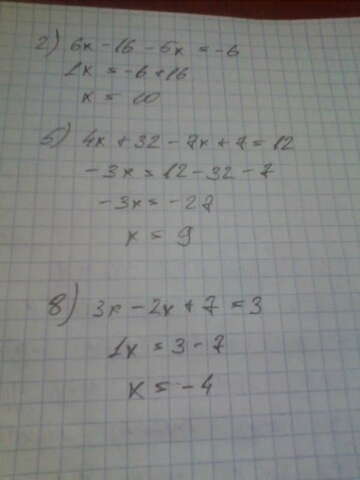 2) 6x - 16 - 5x = -6
1x = -6 + 16
x = 10
5) 4x + 32 - 7x + 7 = 12
-3x = 12 - 32 - 7
-3x = -27
x = 9
8) 3x - 2x + 7 = 3
1x = 3 - 7
x = -4